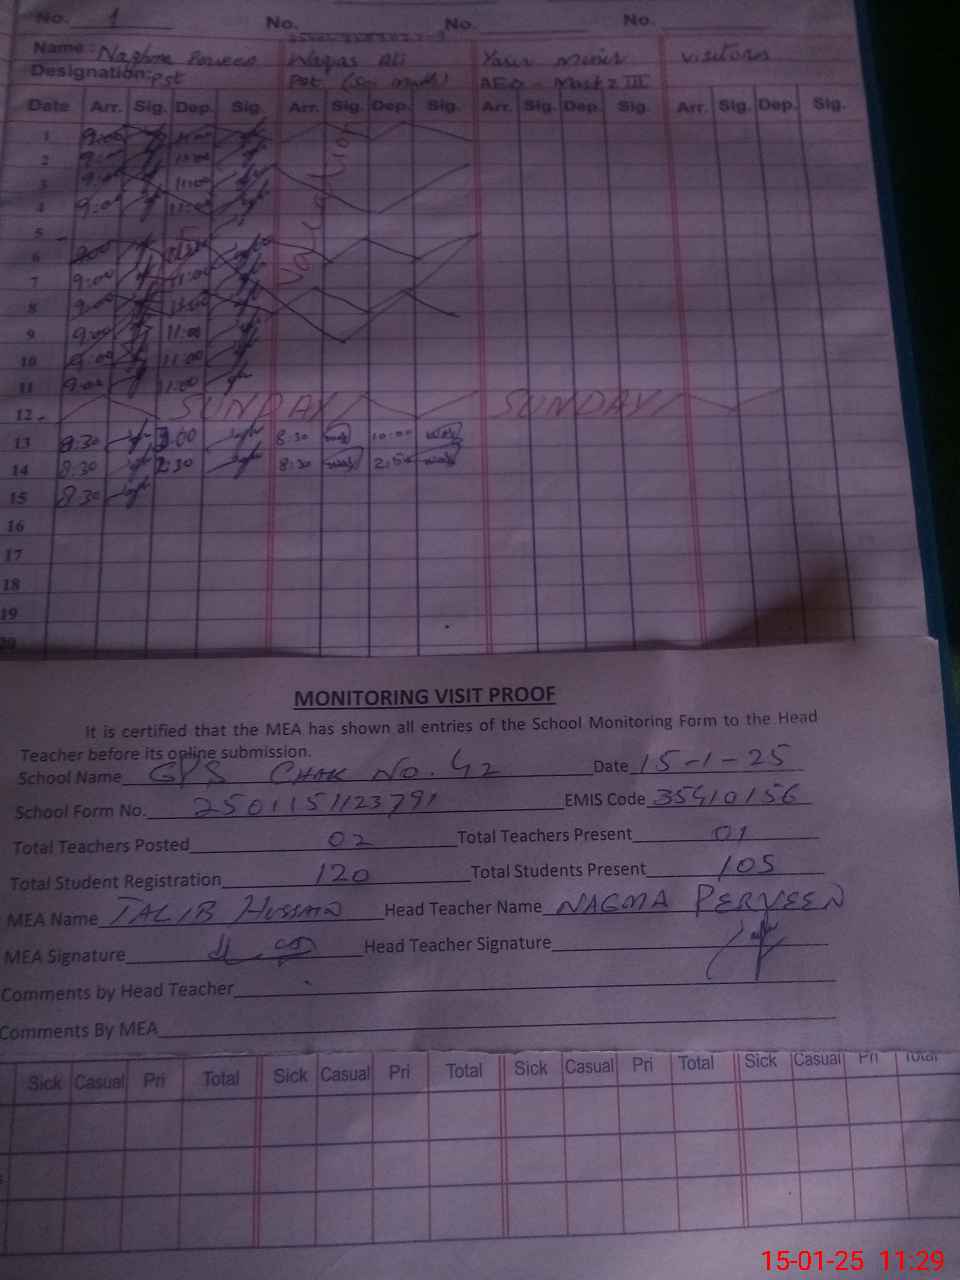 No. 1 No. No. No.
Name: Naghma Perveen Waqas Ali Yasir Munir visitors
Designation: pst Pst (Sci math) AEO - III
Date Arr. Sig. Dep. Sig. Arr. Sig. Dep. Sig. Arr. Sig. Dep. Sig. Arr. Sig. Dep. Sig.
1 9:00 11:00
2 9:00 11:00
3 9:00 11:00
4 9:00 11:00
5
6 9:00
7 9:00 11:00
8 9:00 11:00
9 9:00 11:00
10 9:00 11:00
11 9:00 11:00
12 SUNDAY SUNDAY
13 8:30 3:00 8:30 10:00
14 8:30 2:30 8:30
15 8:30
16
17
18
19
20
MONITORING VISIT PROOF
It is certified that the MEA has shown all entries of the School Monitoring Form to the Head
Teacher before its online submission.
School Name GPS CHAK No. 42 Date 15-1-25
School Form No. 2501151123791 EMIS Code 35410156
Total Teachers Posted 02 Total Teachers Present 01
Total Student Registration 120 Total Students Present 105
MEA Name TALIB HUSSAIN Head Teacher Name NAGMA PERVEEN
MEA Signature Head Teacher Signature
Comments by Head Teacher
Comments By MEA
Sick Casual Pri Total Sick Casual Pri Total Sick Casual Pri Total Sick Casual Pri Total
15-01-25 11:29